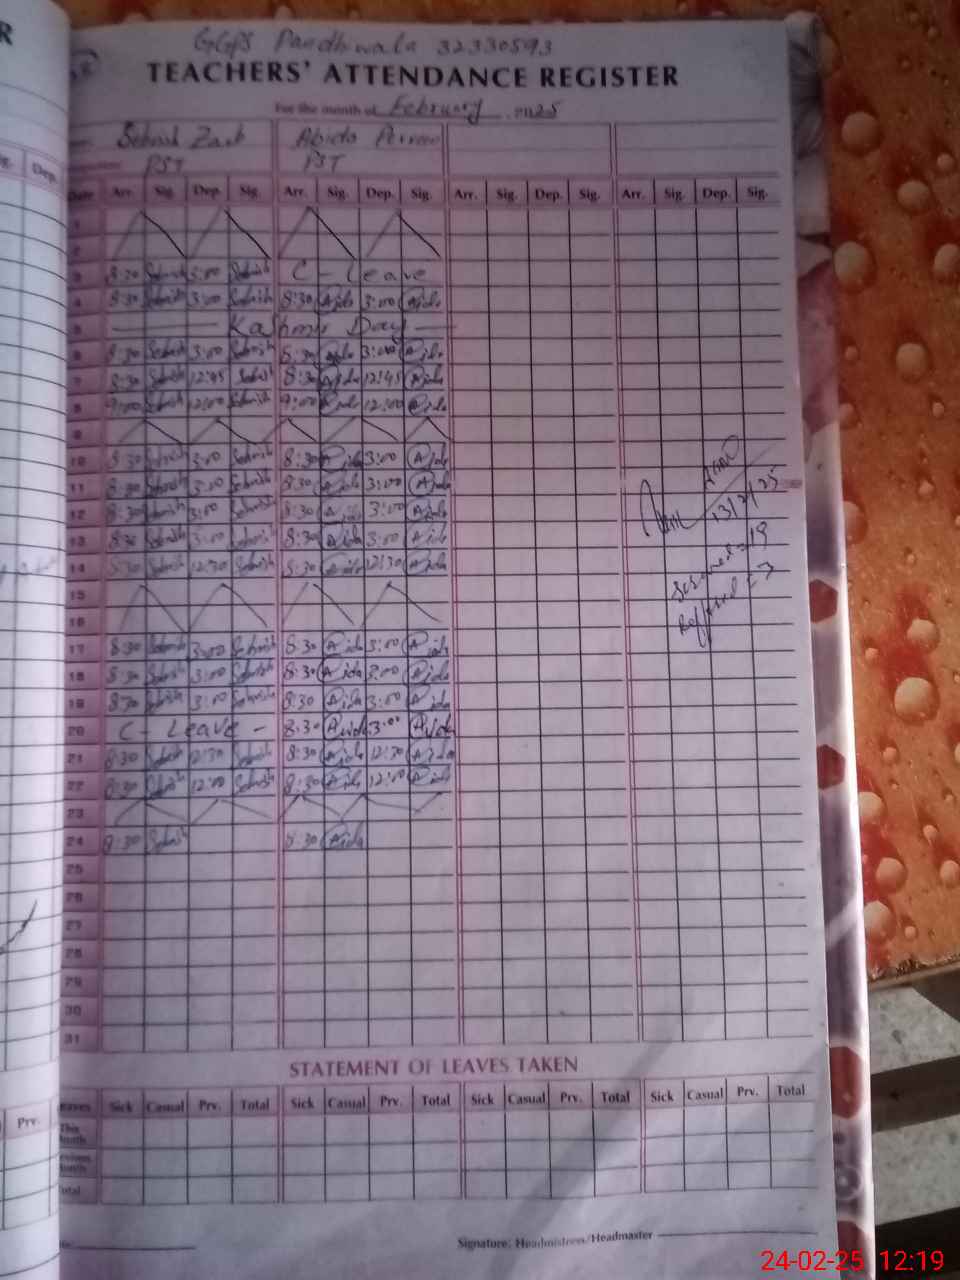 R
GGPS Pandhiwala 32330593
TEACHERS' ATTENDANCE REGISTER
For the month of February 2025
Sehrish Zaib Abida Perveen
PST PST
Dep.
Date Arr. Sig. Dep. Sig. Arr. Sig. Dep. Sig. Arr. Sig. Dep. Sig. Arr. Sig. Dep. Sig.
1
2
3 8:30 Sehrish 3:00 Sehrish C - Leave
4 8:30 Sehrish 3:00 Sehrish 8:30 Aida 3:00 Aida
5 Kashmir Day
6 8:30 Sehrish 3:00 Sehrish 8:30 Aida 3:00 Aida
7 8:30 Sehrish 12:45 Sehrish 8:30 Aida 12:45 Aida
8 9:00 Sehrish 12:00 Sehrish 9:00 Aida 12:00 Aida
9
10 8:30 Sehrish 3:00 Sehrish 8:30 Aida 3:00 Aida
11 8:30 Sehrish 3:00 Sehrish 8:30 Aida 3:00 Aida
12 8:30 Sehrish 3:00 Sehrish 8:30 Aida 3:00 Aida
13/2/25
13 8:30 Sehrish 3:00 Sehrish 8:30 Aida 3:00 Aida
14 8:30 Sehrish 12:30 Sehrish 8:30 Aida 12:30 Aida
= 19
15
= 3
16
17 8:30 Sehrish 3:00 Sehrish 8:30 Aida 3:00 Aida
18 8:30 Sehrish 3:00 Sehrish 8:30 Aida 3:00 Aida
19 8:30 Sehrish 3:00 Sehrish 8:30 Aida 3:00 Aida
20 C - Leave - 8:30 Aida 3:00 Aida
21 8:30 Sehrish 12:30 Sehrish 8:30 Aida 12:30 Aida
22 8:30 Sehrish 12:00 Sehrish 8:30 Aida 12:00 Aida
23
24 8:30 Sehrish 8:30 Aida
25
26
27
28
29
30
31
STATEMENT OF LEAVES TAKEN
Prv.
Leaves Sick Casual Prv. Total Sick Casual Prv. Total Sick Casual Prv. Total Sick Casual Prv. Total
This Month
Previous Month
Total
Signature, Headmistress/Headmaster
24-02-25 12:19